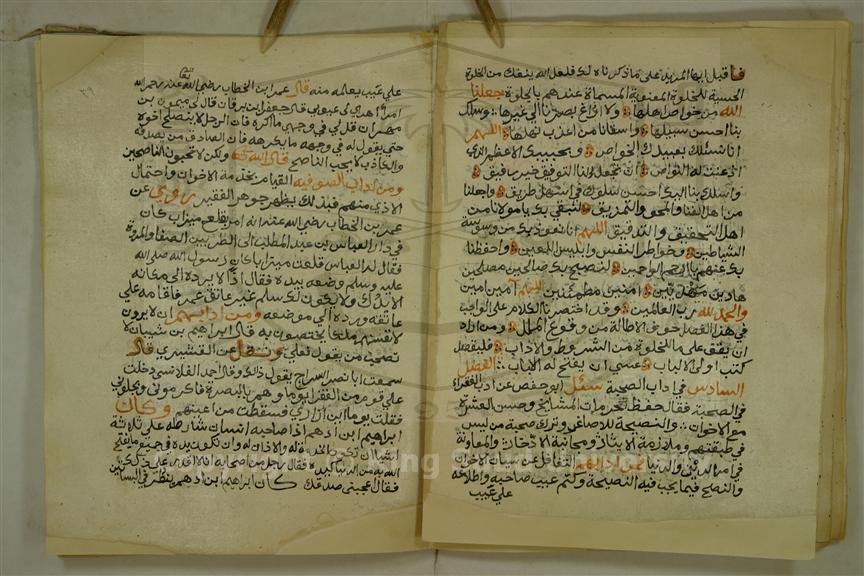 فاقبل ايها المريد على ما ذكرناه لك فلعل الله ينقلك من الخلوة
الحسية للخلوة المعنوية المسماة عندهم بالجلوة جعلنا
الله من خواص اهلها ولا ازاغ بصرنا الى غيرها وسلك
بنا احسن سبيلها واسقانا من اعذب نهلها اللهم
انا نسئلك بعبيدك الخواص وبحبيبك الاعظم الذي
ان تجعل لنا التوفيق خير رفيق
واسلك بنا اليك احسن سلوك في اسهل طريق واجعلنا
من اهل الفنا والمحو والتمزيق لنبقى بك يا مولانا من
اهل التحقيق والتدقيق اللهم انا نعوذ بك من وسوسة
الشياطين وخواطر النفس وابليس اللعين واحفظنا
بك منهم يا ارحم الراحمين لنصبح بك صالحين مصلحين
هادين مهتدين امنين مطمئنين اللهم امين امين
والحمد لله رب العالمين وقد اختصرنا الكلام على الواجب
في هذا الفصل خوف الاطالة من وقوع الملل ومن اراد
ان يقف على ما للخلوة من الشروط والاداب فليتصفح
كتب اولي الالباب عسى ان يفتح له الباب الفصل
السادس في اداب الصحبة سئل ابو حفص عن ادب الفقراء
في الصحبة فقال حفظ حرمات المشايخ وحسن العشرة
مع الاخوان والنصيحة للاصاغر وترك صحبة من ليس
في طبقتهم وملازمة الايثار ومجانبة الادخار والمعاونة
في امر الدين والدنيا فمن ادابهم التغافل عن الاخوان
والنصح فيما يجب فيه النصيحة وكتم عيب صاحبه واطلاعه
على عيب
على عيب يعلمه منه قال عمر ابن الخطاب رضي الله تعالى عنه رحم الله
امرأ اهدى الي عيوبي قال جعفر ابن برقان قال لي ميمون بن
مهران قل لي في وجهي ما اكره فان الرجل لا ينصح اخوه
حتى يقول له في وجهه ما يكرهه فان الصادق من يصدقه
والكاذب لا يحب الناصح قال الله تعالى ولكن لا تحبون الناصحين
ومن اداب الصوفيه القيام بخدمة الاخوان واحتمال
الاذى منهم فبذلك يظهر جوهر الفقير روي عن
عمر بن الخطاب رضي الله عنه انه امر بقلع ميزاب كان
في دار العباس بن عبد المطلب الى الطريق بين الصفا والمروة
فقال له العباس قلعت ميزابا كان رسول الله صلى الله
عليه وسلم وضعه بيده فقال اذا لا يرده الى مكانه
الا يدك ولا يكون لك سلم غير عاتق عمر فاقامه على
عاتقه ورده الى موضعه ومن ادابهم ان لا يرون
لانفسهم ملكا يختصون به قال ابراهيم بن شيبان لا
نصحب من يقول نعلي ونقل عن القشيري قال
سمعت ابا نصر السراج يقول ذلك وقال احمد القلانسي دخلت
على قوم من الفقرا يوما وهم بالبصرة فاكرموني وبجلوني
فقلت يوما اين ازاري فسقطت من اعينهم وكان
ابراهيم ابن ادهم اذا صاحبه انسان شارطه على ثلاثة
اشيا ان تكون الخدمة له والاذان له وان تكون يده في جميع ما يفتح
الله به من الدنيا كيده فقال رجل من اصحابه انا لا اقدر على ذلك
فقال اعجبني صدقك كان ابراهيم ابن ادهم ينظر في البساتين